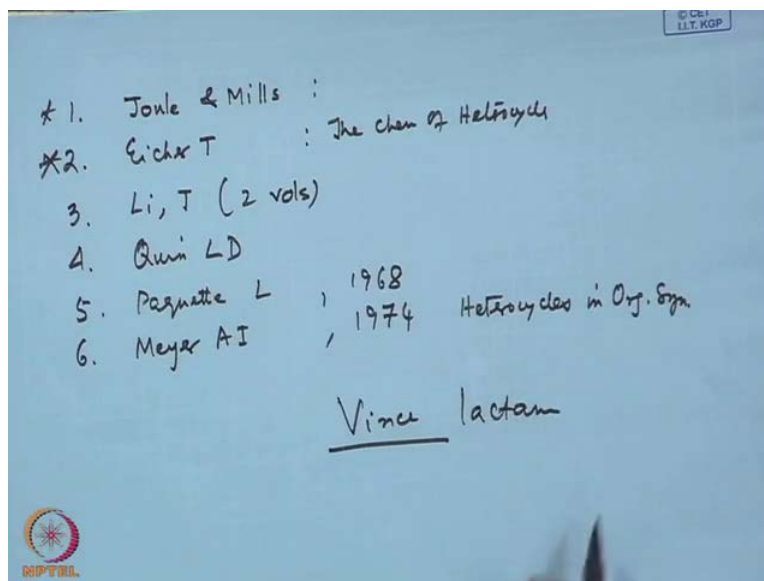 © CET
I.I.T. KGP
* 1. Joule & Mills :
*2. Eicher T : The Chem of Heterocycle
3. Li, J (2 vols)
4. Quin LD
5. Paquette L , 1968
6. Meyer AI , 1974 Heterocycles in Org. Syn.
Vince lactam
NPTEL